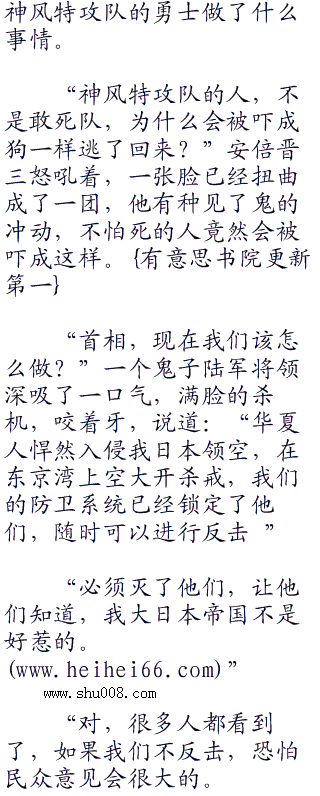 神风特攻队的勇士做了什么
事情。
“神风特攻队的人，不
是敢死队，为什么会被吓成
狗一样逃了回来？”安倍晋
三怒吼着，一张脸已经扭曲
成了一团，他有种见了鬼的
冲动，不怕死的人竟然会被
吓成这样。{有意思书院更新
第一}
“首相，现在我们该怎
么做？”一个鬼子陆军将领
深吸了一口气，满脸的杀
机，咬着牙，说道：“华夏
人悍然入侵我日本领空，在
东京湾上空大开杀戒，我们
的防卫系统已经锁定了他
们，随时可以进行反击 ”
“必须灭了他们，让他
们知道，我大日本帝国不是
好惹的。
(www.heihei66.com)”
www.shu008.com
“对，很多人都看到
了，如果我们不反击，恐怕
民众意见会很大的。